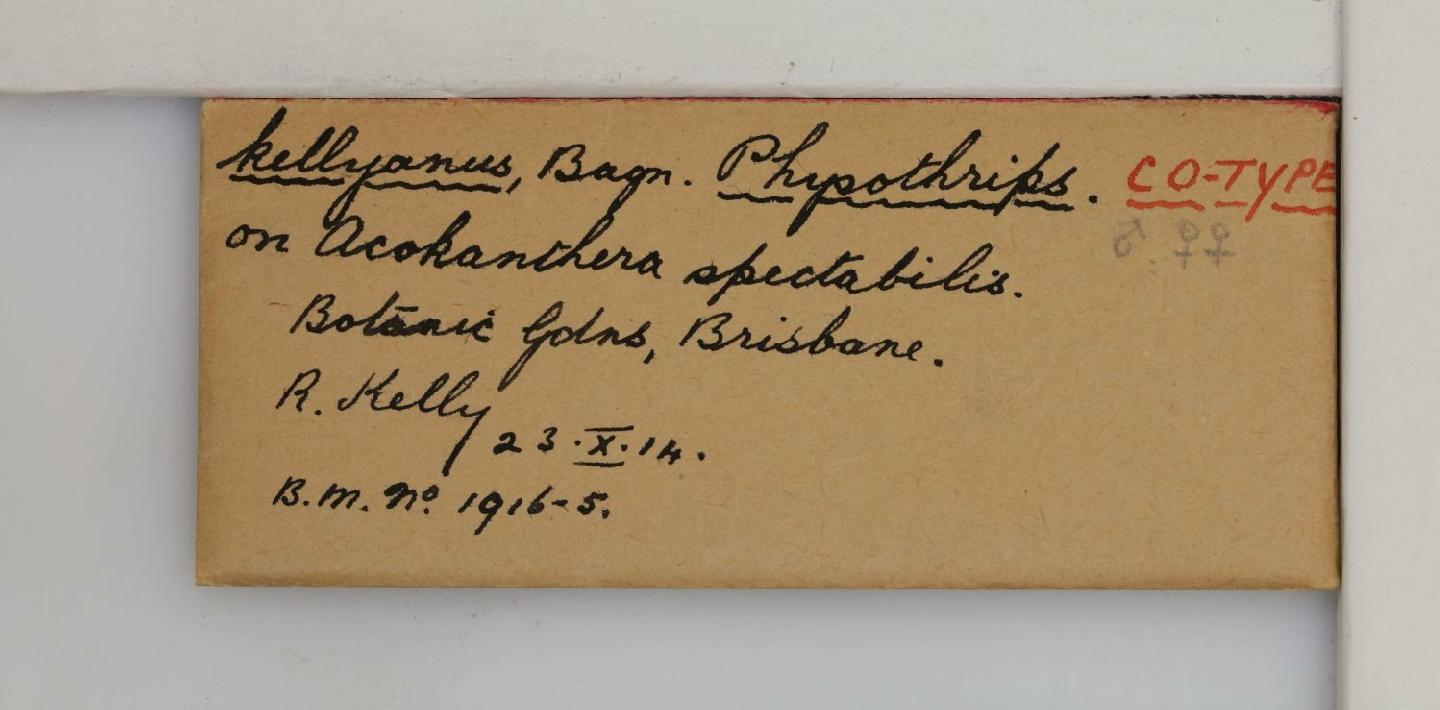 kellyanus, Bagn. Physothrips. CO-TYPE
♂ ♀♀
on Acokanthera spectabilis.
Botanic Gdns, Brisbane.
R. Kelly
23.X.14.
B.M. No. 1916-5.